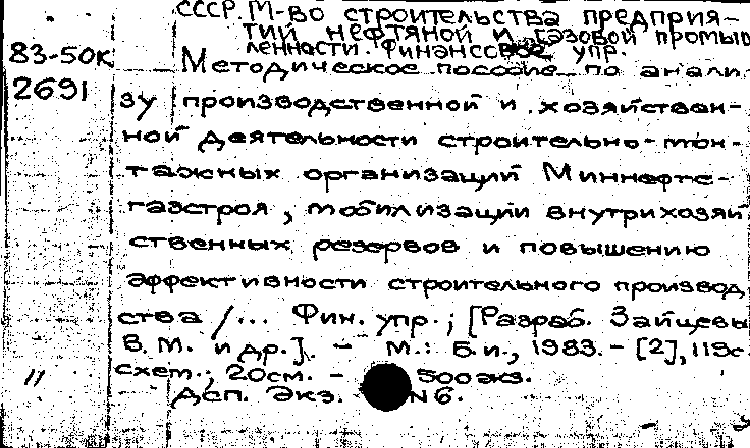 СССР. М-во строительства предприя-
тий нефтяной и газовой промыш
ленности. Финансовое упр.
83-50к
2691
Методическое пособие по анали-
зу производственной и хозяйствен-
ной деятельности строительно-мон-
тажных организаций Миннефте-
газстроя, мобилизации внутрихозяй
ственных резервов и повышению
эффективности строительного производ
ства /... Фин. упр.; [Разраб. Зайцевы
В. М. и др.]. - М.: Б.и., 1983. - [2], 119с
схем.; 20см. - 500экз.
11
Дсп. Экз. N6.